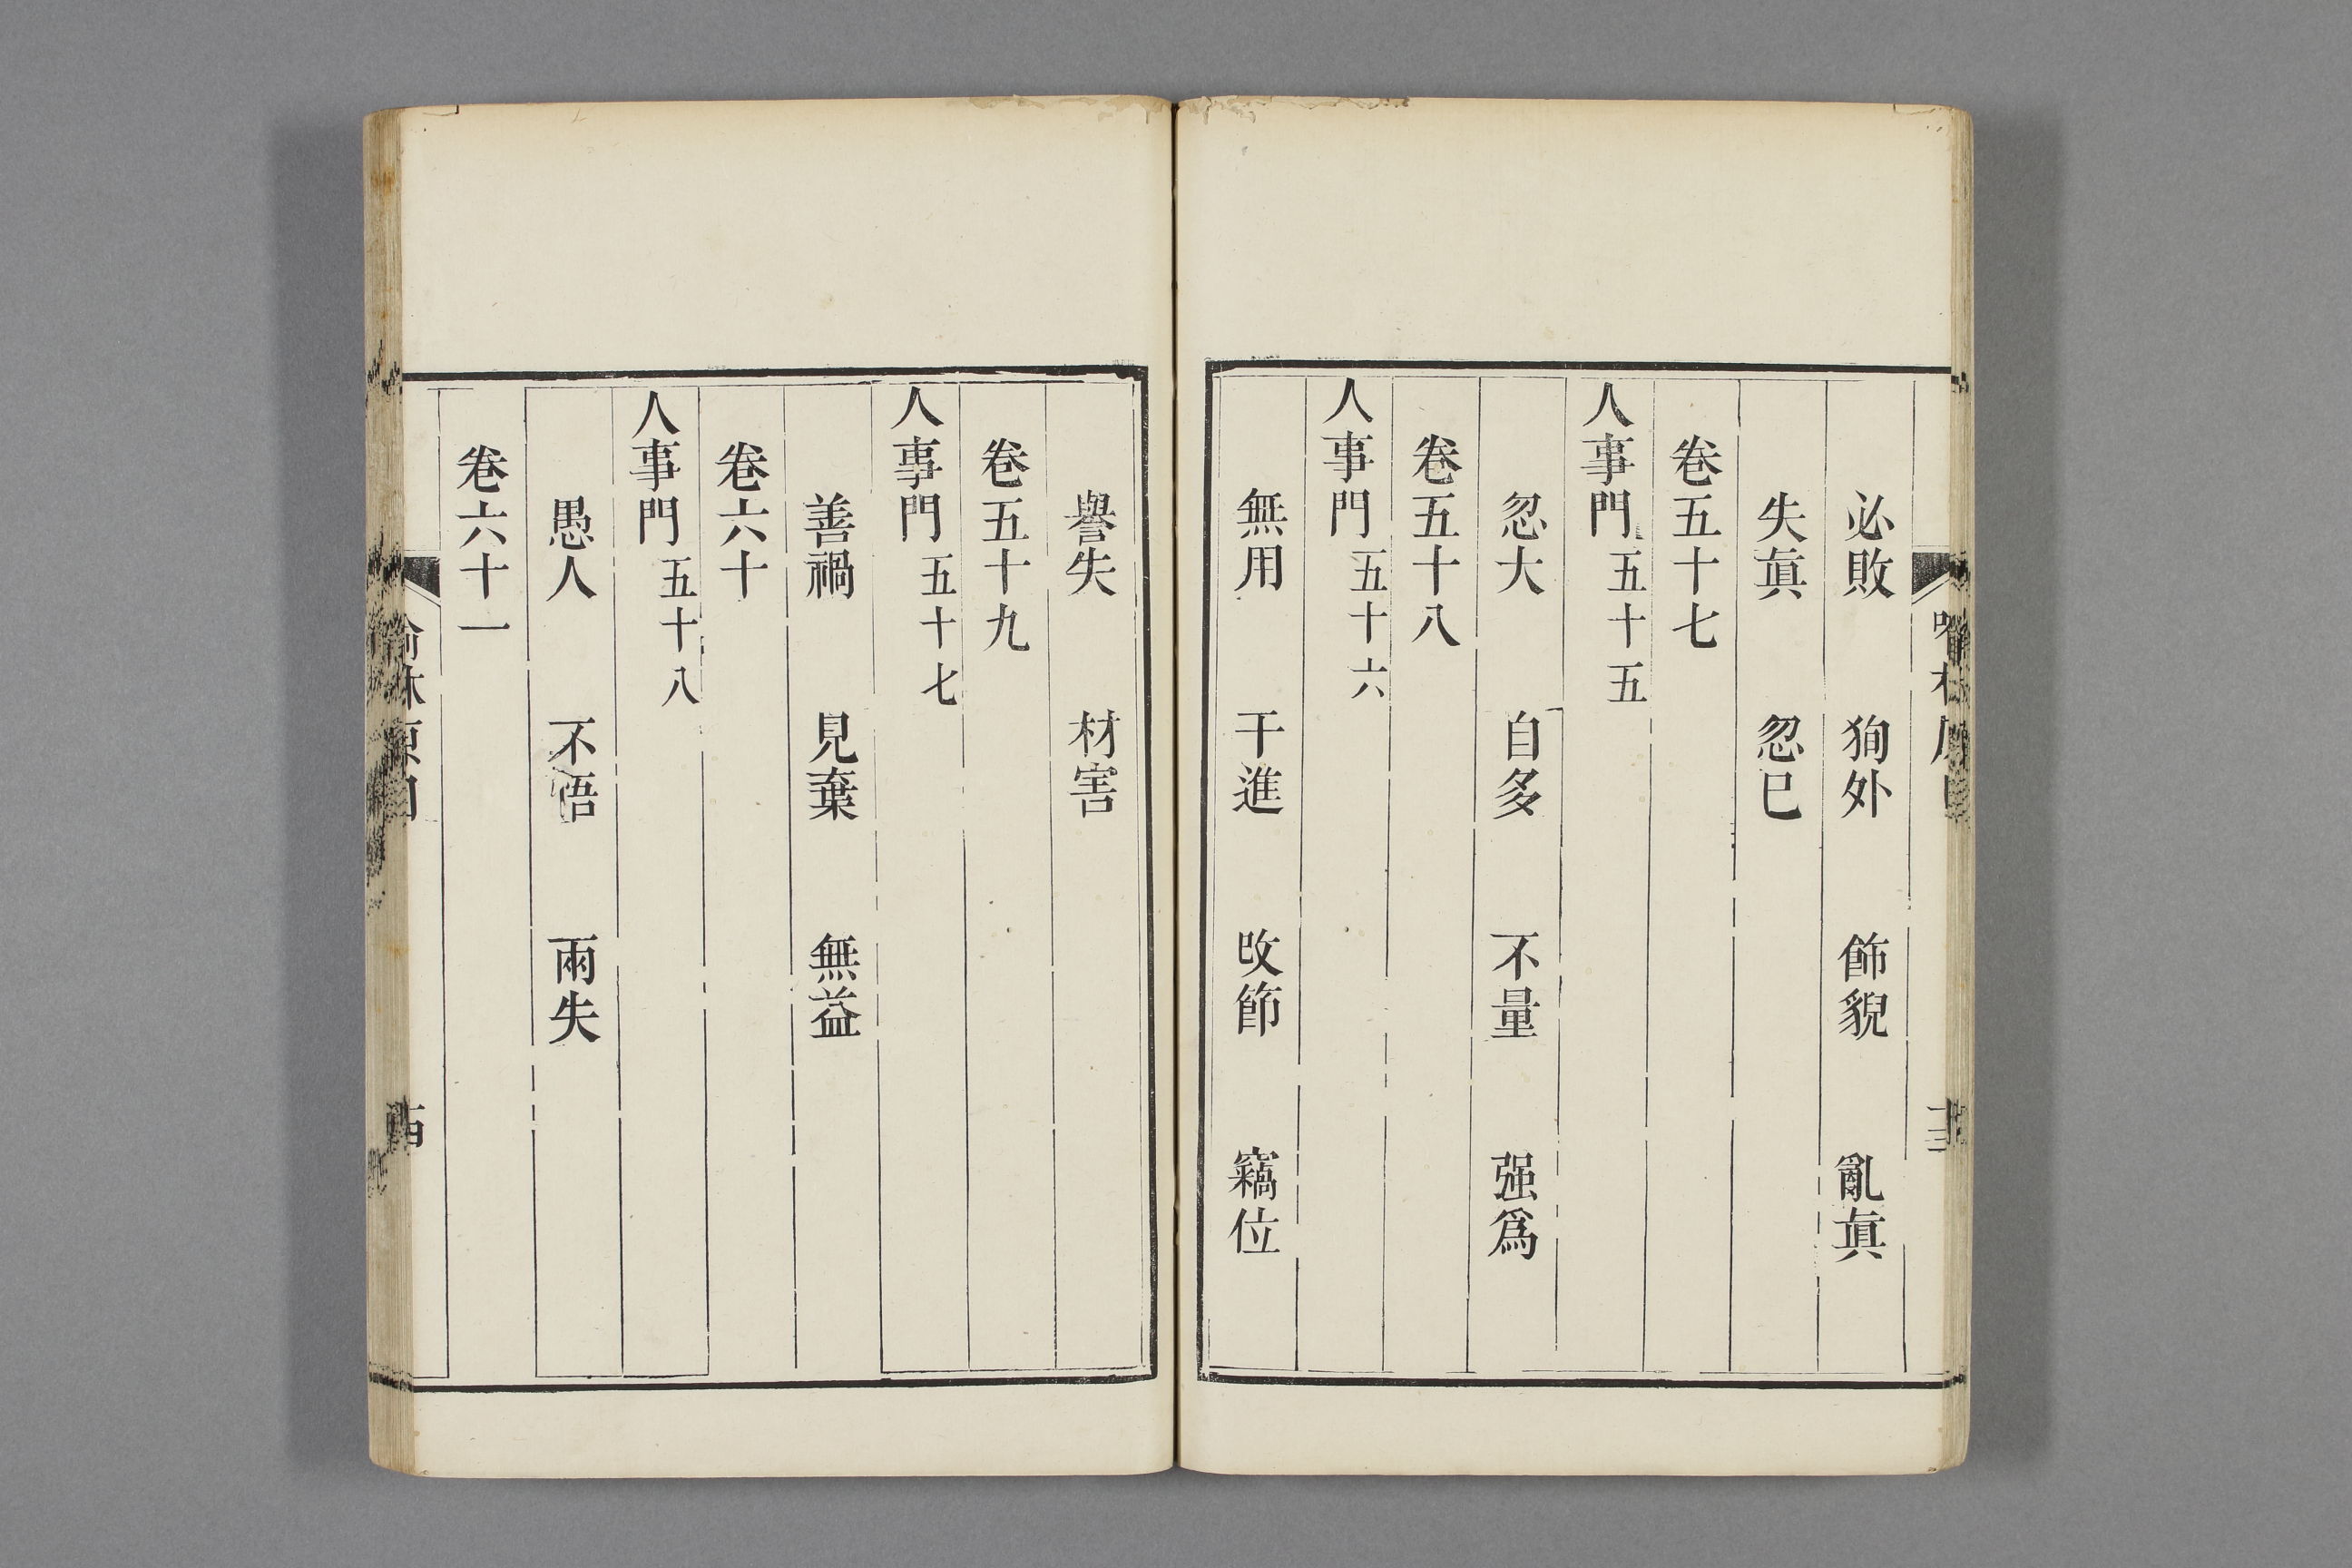 必敗　狥外　飾貌　亂眞
失眞　忽已
卷五十七
人事門五十五
忽大　自多　不量　强爲
卷五十八
人事門五十六
無用　干進　改節　竊位
譽失　材害
卷五十九
人事門五十七
善禍　見棄　無益
卷六十
人事門五十八
愚人　不悟　兩失
卷六十一